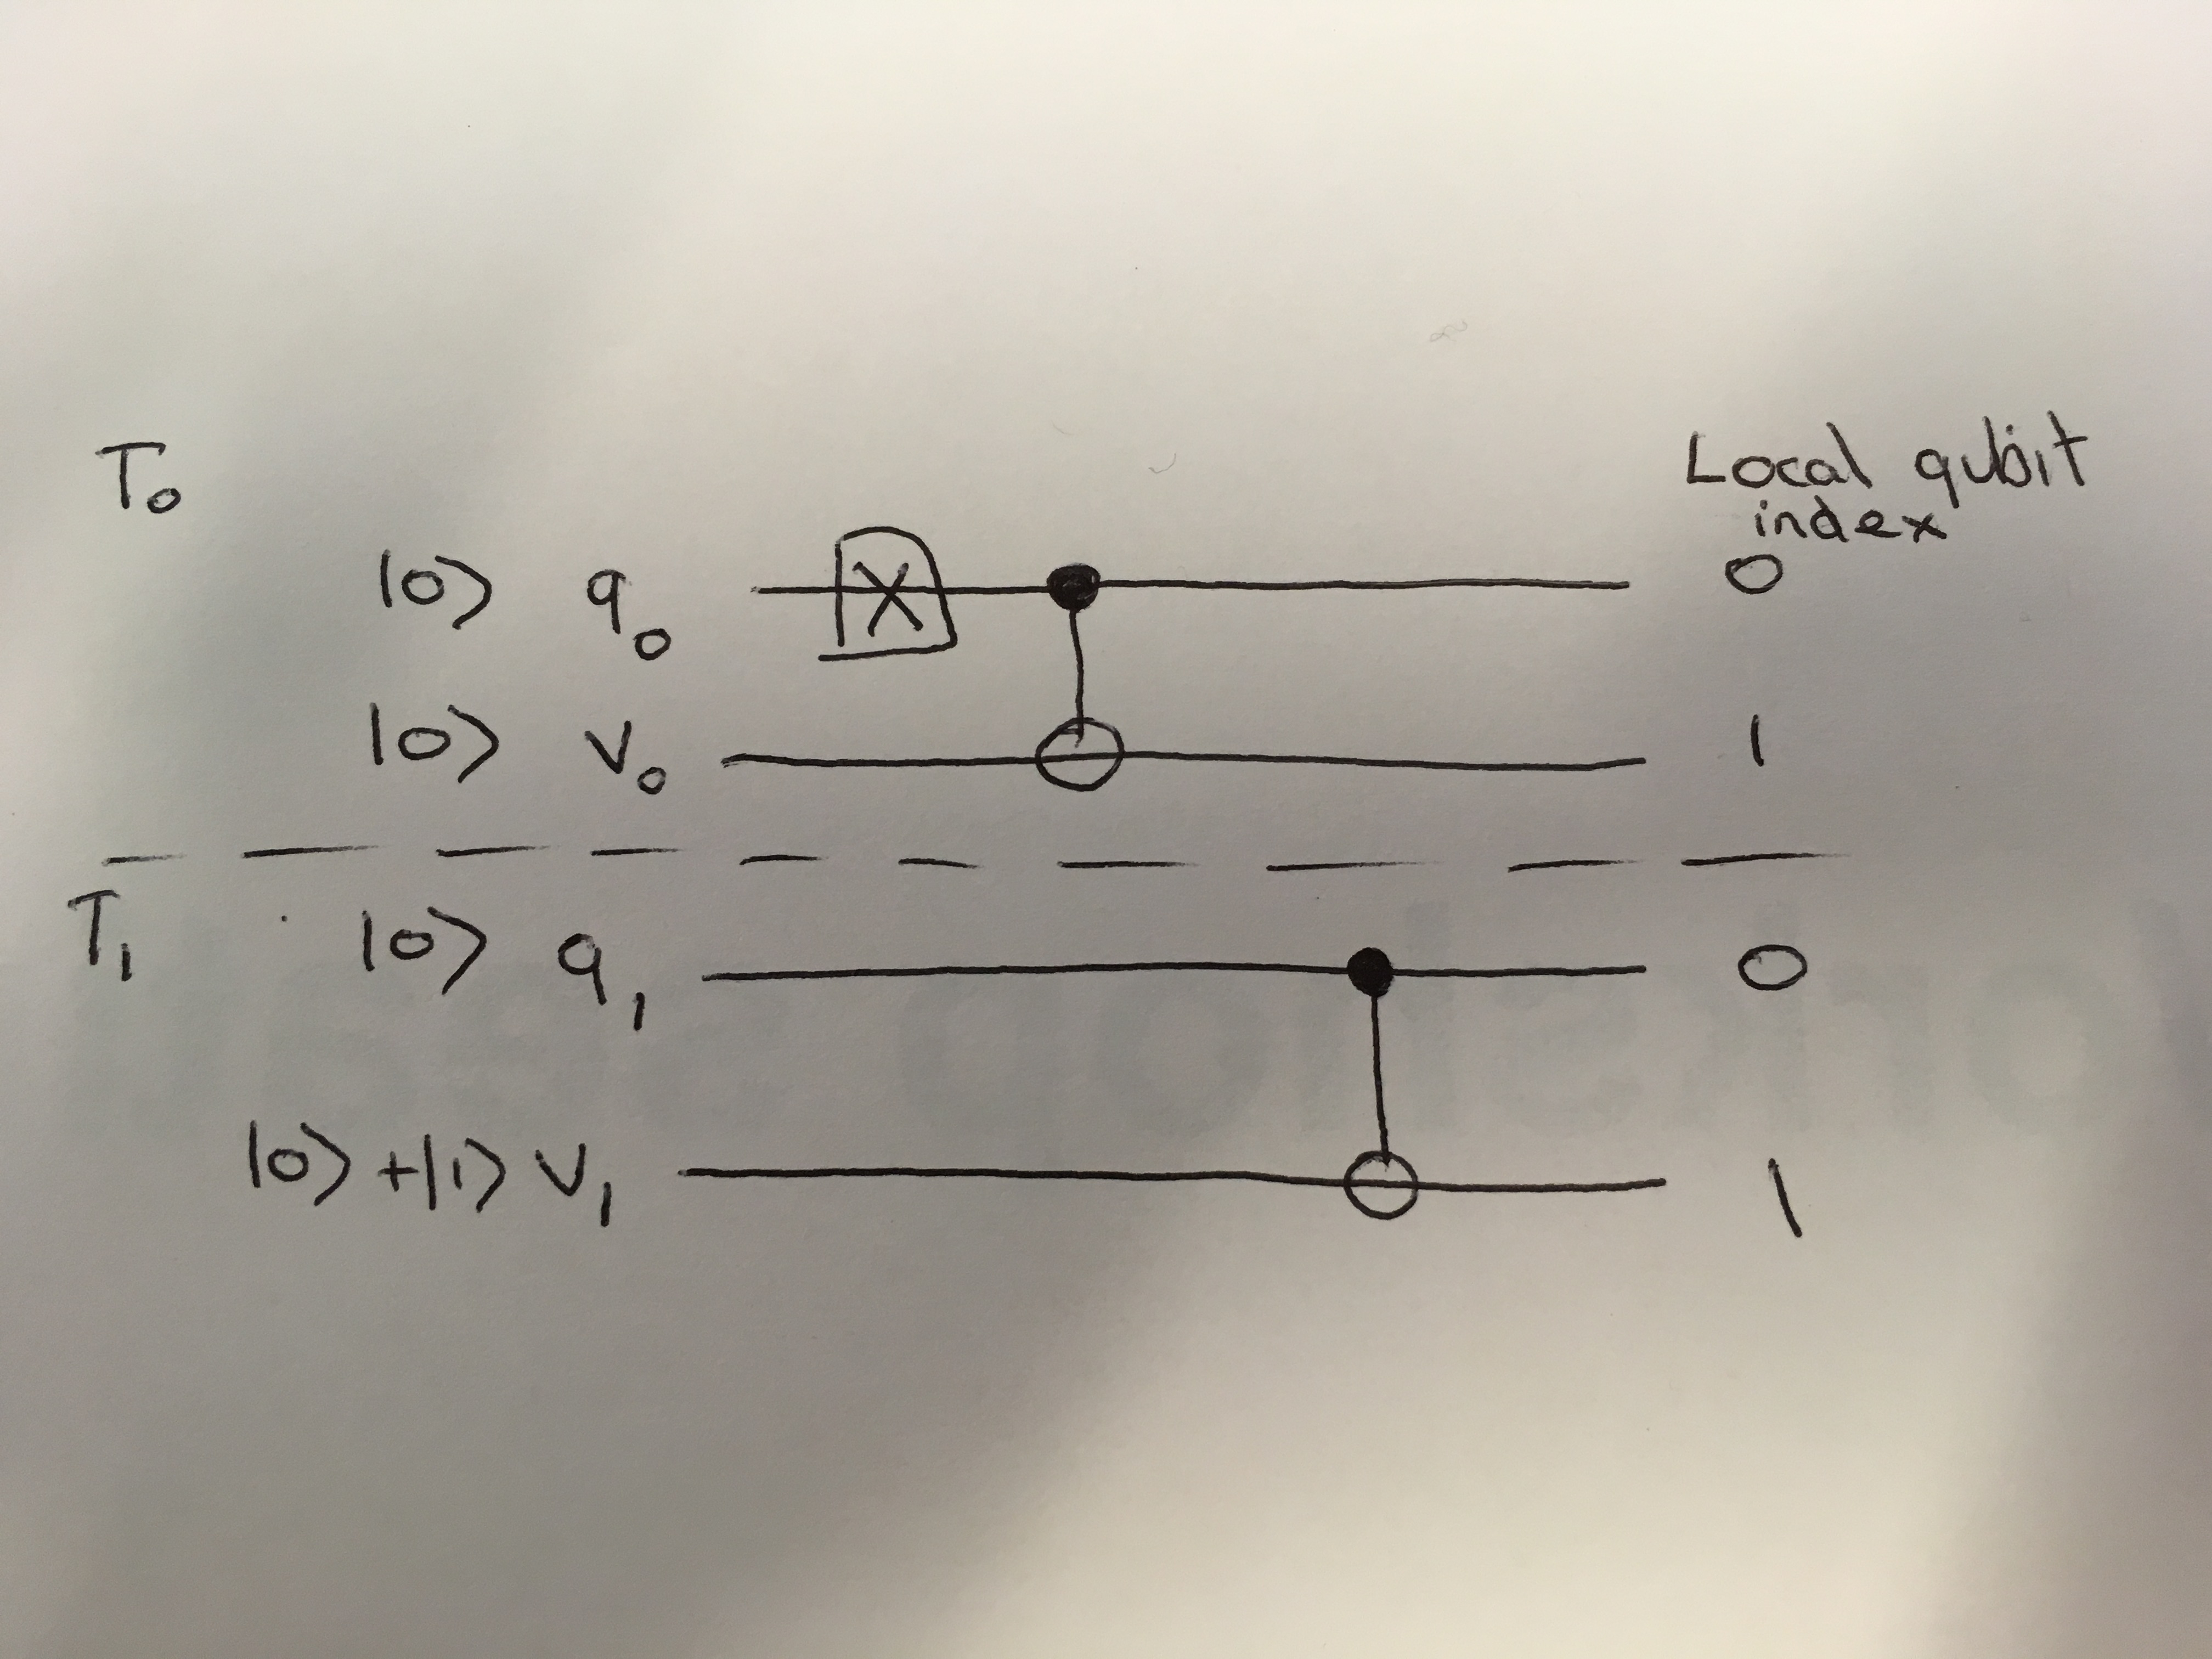 T₀
Local qubit
index
|0⟩ q₀ X 0
|0⟩ v₀ 1
T₁ |0⟩ q₁ 0
|0⟩ + |1⟩ v₁ 1